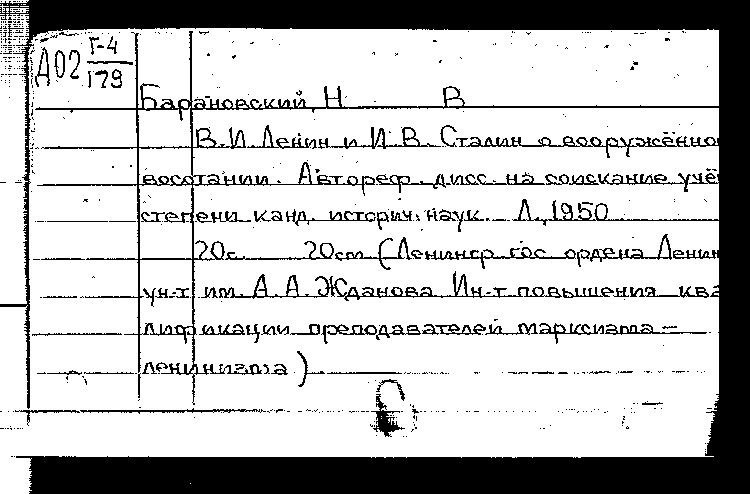 А02 Г-4
179
Барановский, Н В
В.И. Ленин и И.В. Сталин о вооружённо
восстании. Автореф. дисс. на соискание учё
степени канд. историч. наук. Л., 1950
20с. 20см (Ленингр. гос. ордена Ленин
ун-т им. А.А. Жданова Ин-т повышения ква
лификации преподавателей марксизма-
ленинизма)